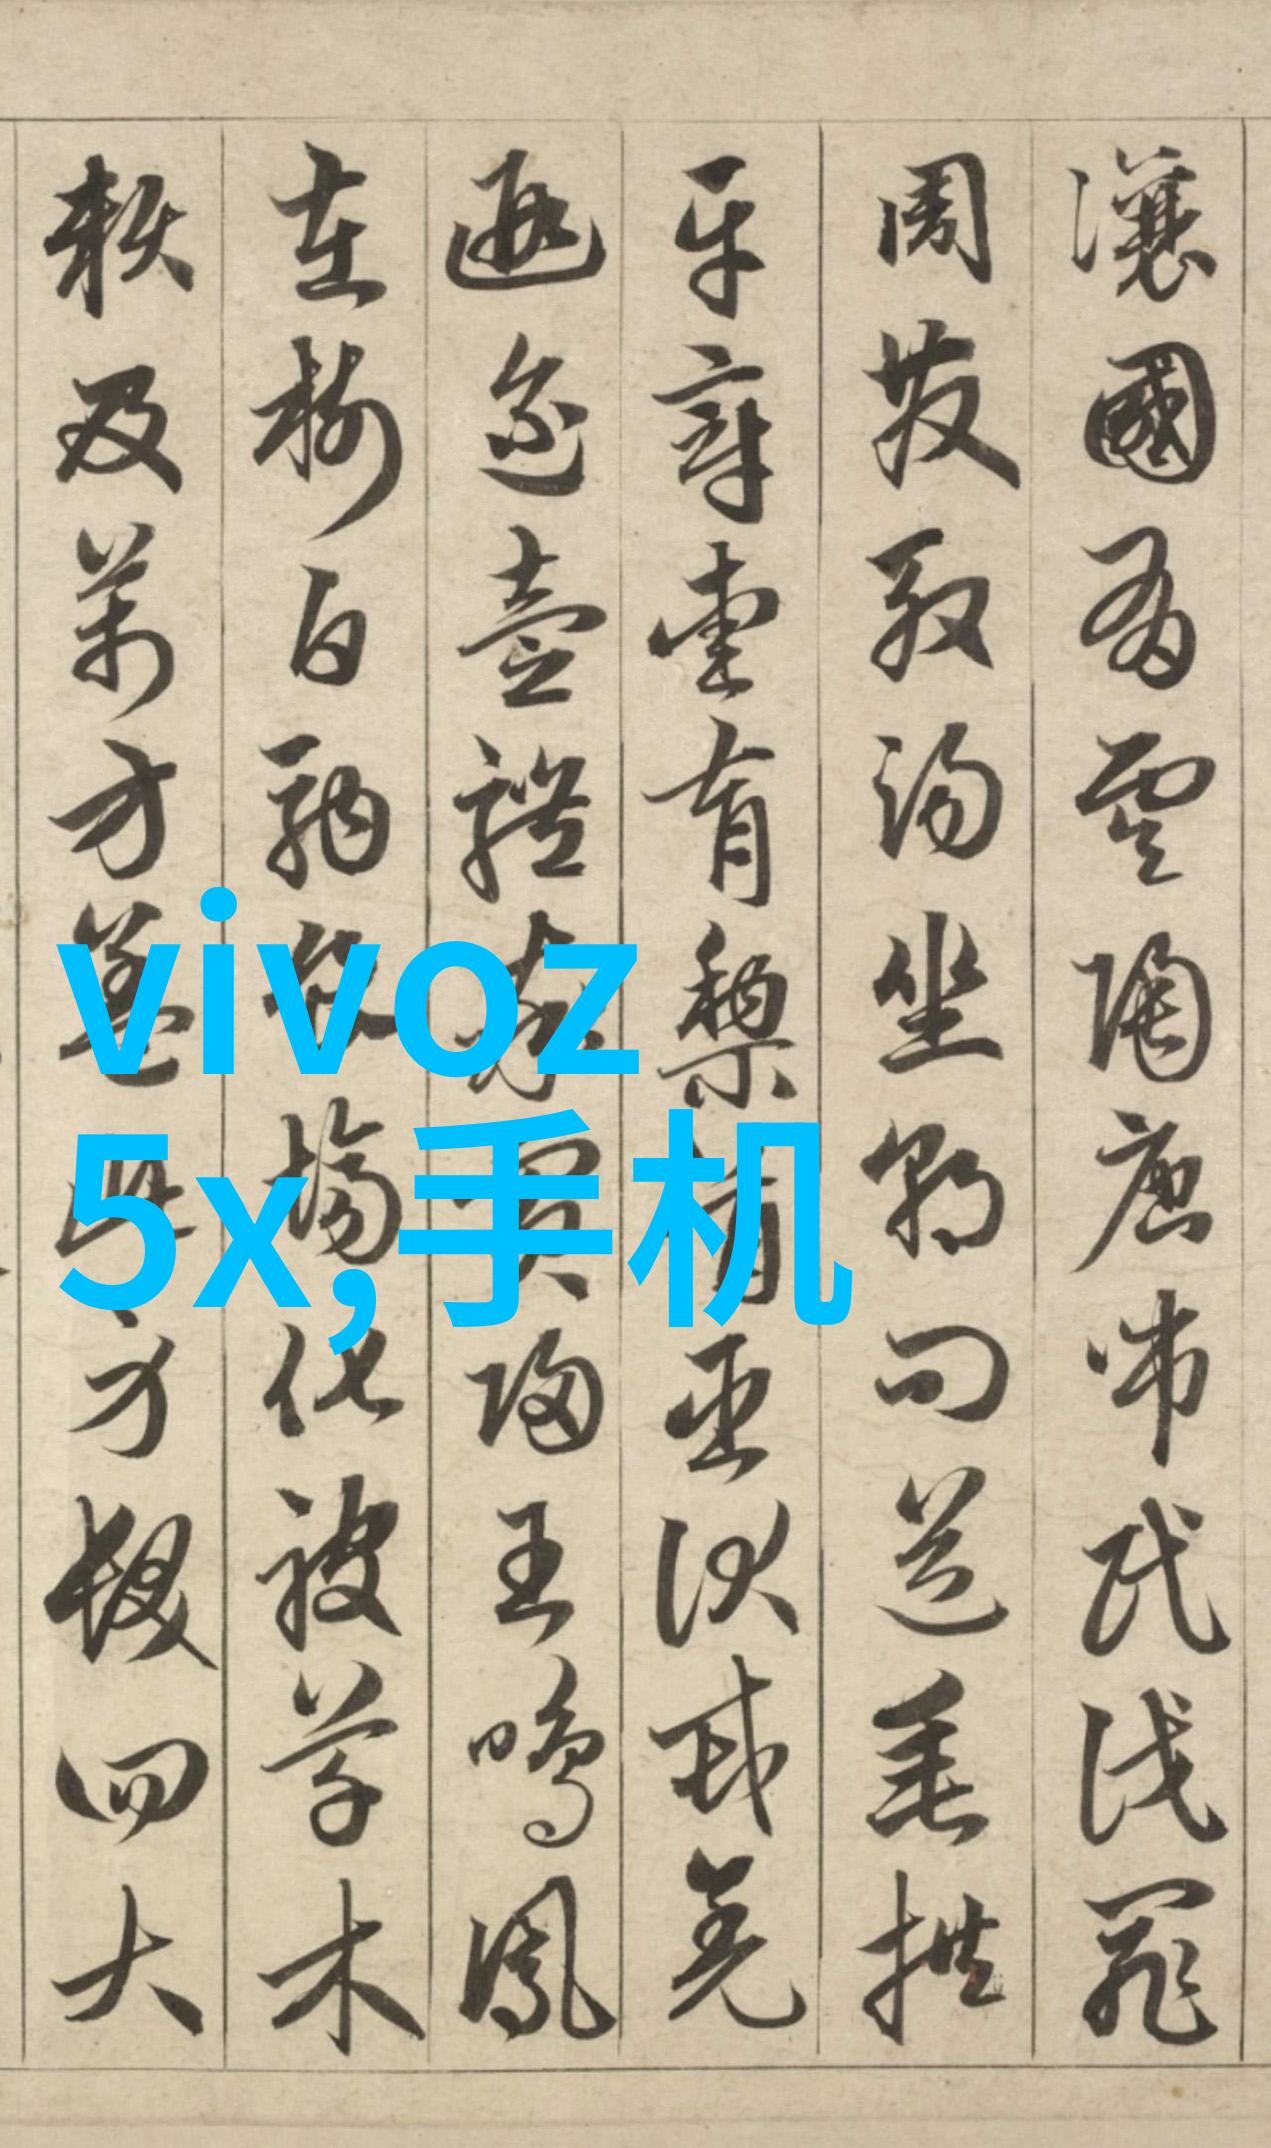 讓國有虞陶唐弔民伐罪
周發殷湯坐朝問道垂拱
平章愛育黎首臣伏戎羌
遐邇壹體率賓歸王鳴鳳
在樹白駒食場化被草木
賴及萬方蓋此身髮四大
vivoz
5x,手机